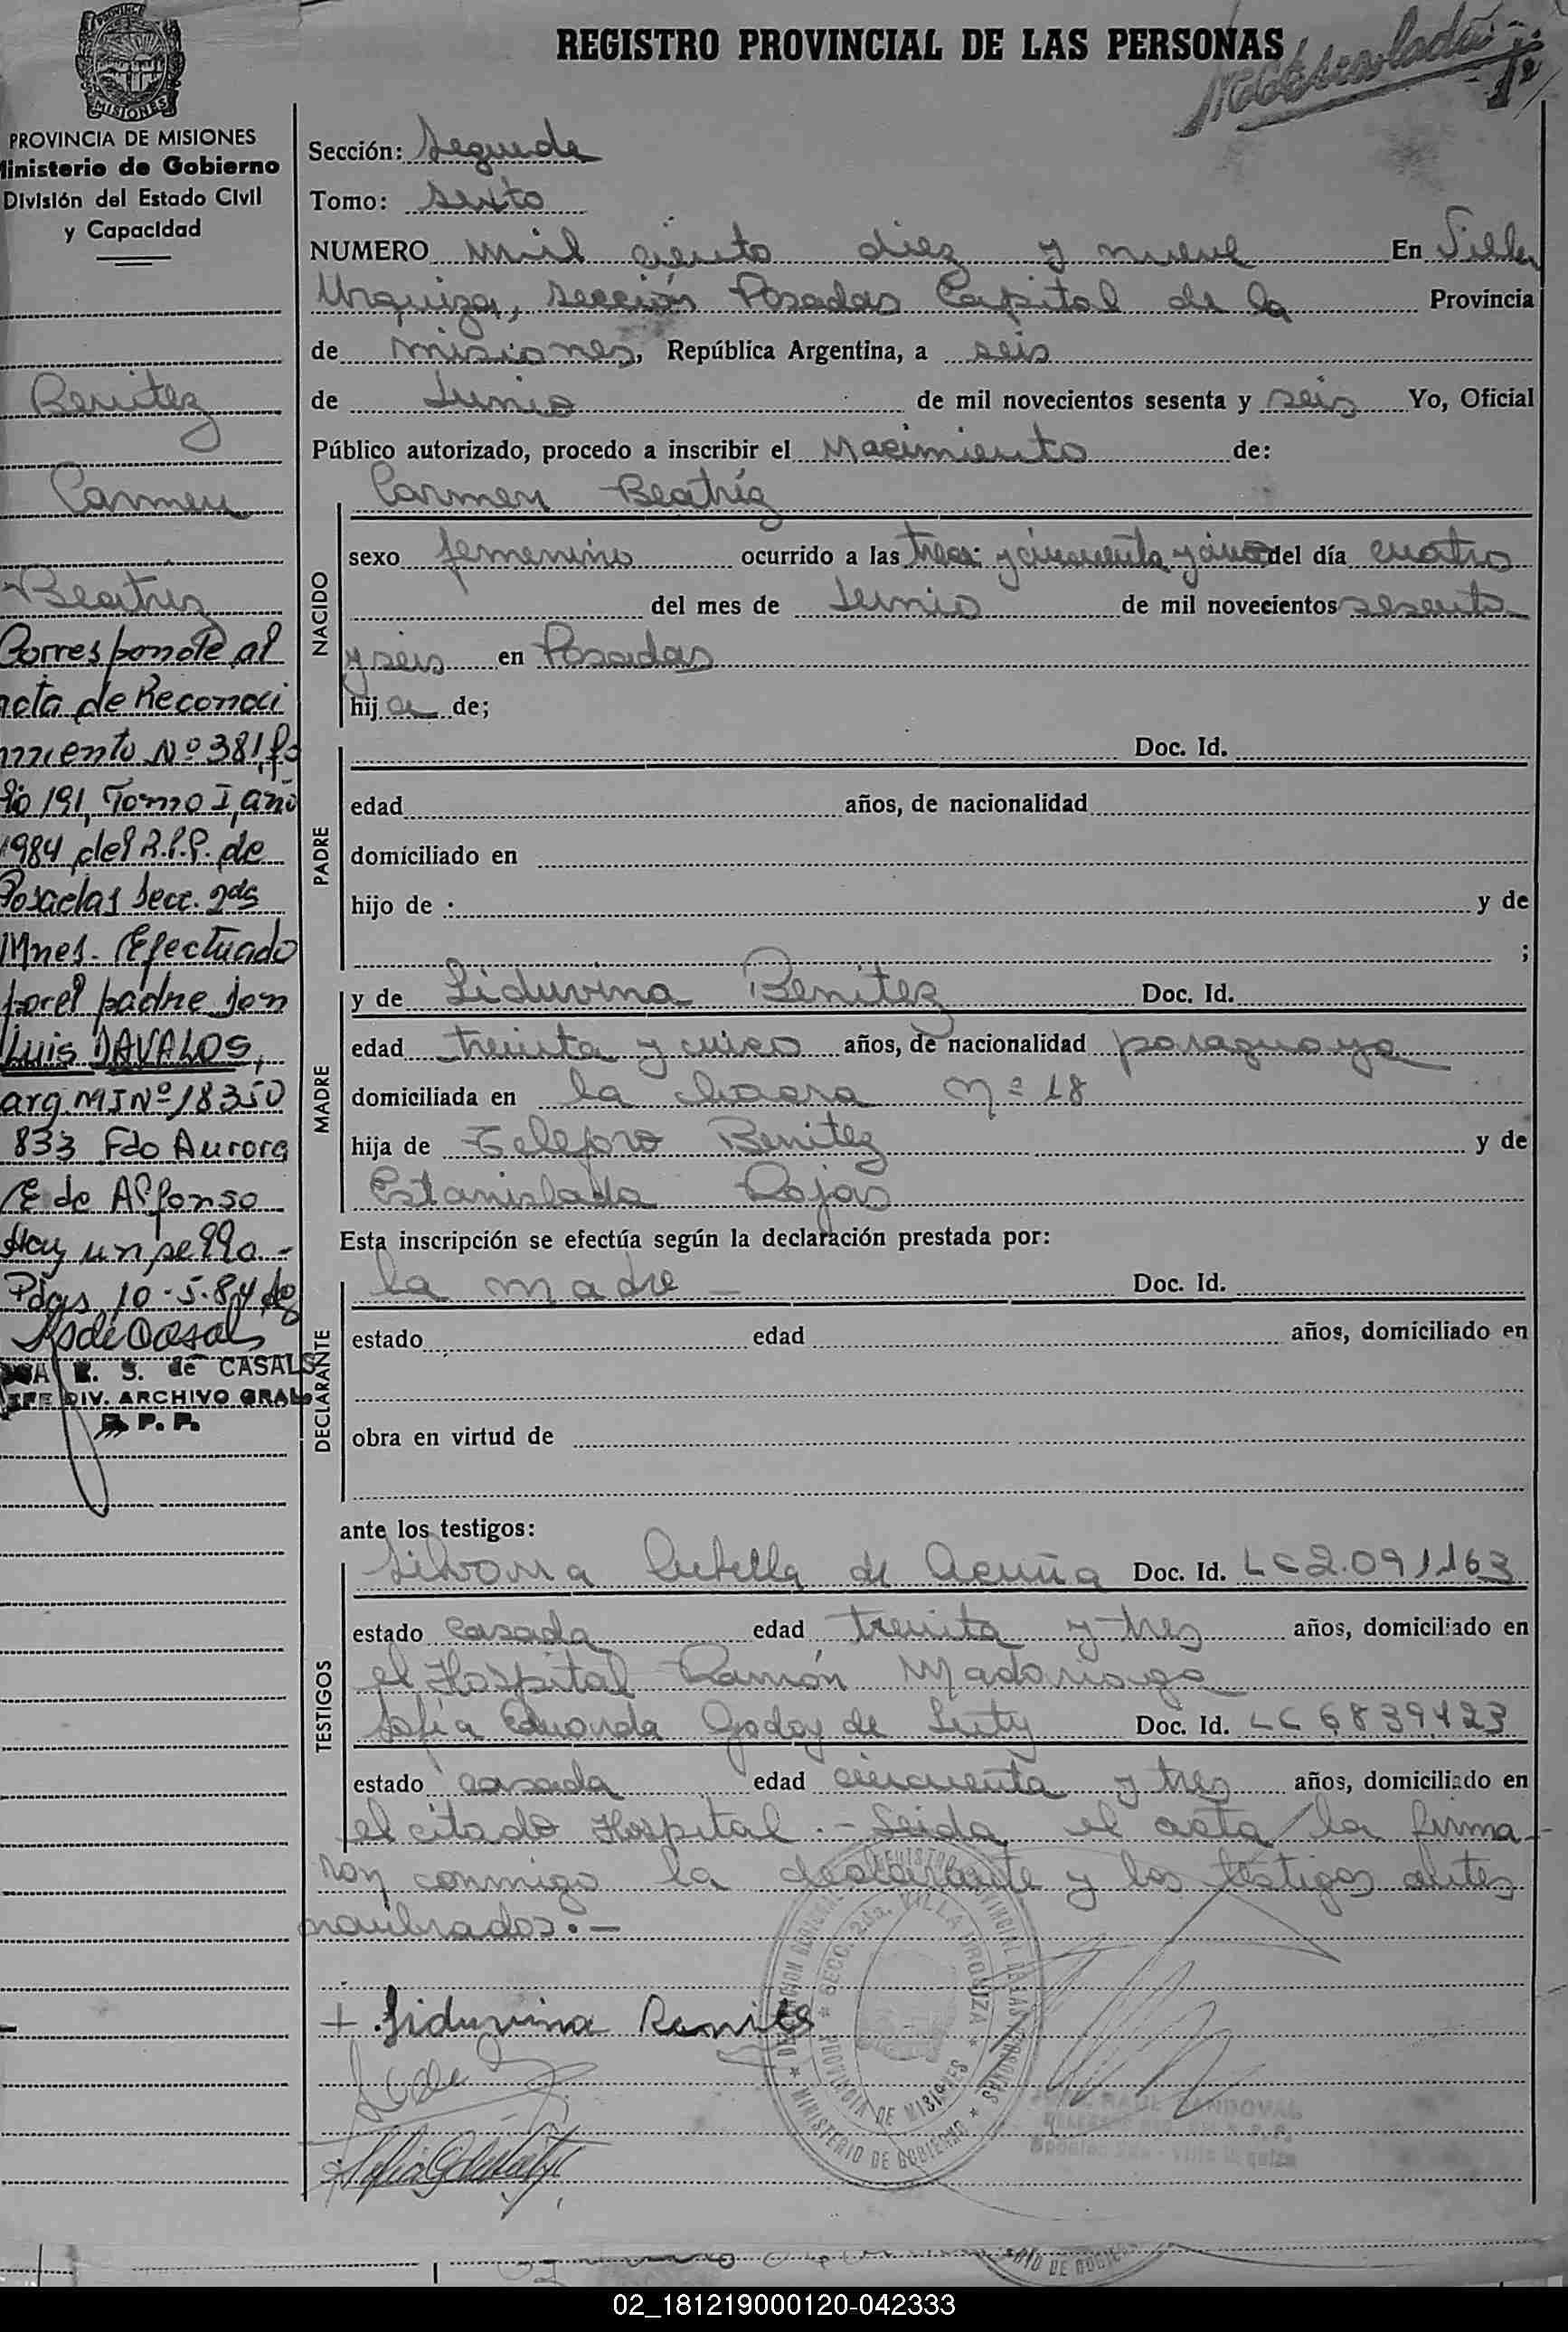 REGISTRO PROVINCIAL DE LAS PERSONAS
PROVINCIA DE MISIONES
Ministerio de Gobierno
División del Estado Civil
y Capacidad
Benitez
Carmen
Beatriz
Corresponde al
acta de Reconoci
miento Nº 381, fo
lio 191, Tomo I, año
1984 del R.P.P. de
Posadas Secc. 2da
Mnes. Efectuado
por el padre don
Luis DAVALOS,
arg. MI Nº 18350
833 Fdo Aurora
E de Alfonso
Hay un sello.-
Pdas, 10-5-84
R. S. de CASALS
JEFE DIV. ARCHIVO GRAL
R. P. P.
Sección: Segunda
Tomo: Sexto
NUMERO mil ciento diez y nueve En Villa
Urquiza, Sección Posadas Capital de la Provincia
de Misiones, República Argentina, a seis
de Junio de mil novecientos sesenta y seis Yo, Oficial
Público autorizado, procedo a inscribir el Nacimiento de:
NACIDO
Carmen Beatríz
sexo femenino ocurrido a las tres y cincuenta y cinco del día cuatro
del mes de Junio de mil novecientos sesenta
y seis en Posadas
hija de;
PADRE
Doc. Id.
edad años, de nacionalidad
domiciliado en
hijo de y de
;
MADRE
y de Liduvina Benitez Doc. Id.
edad treinta y cinco años, de nacionalidad paraguaya
domiciliada en la chacra Nº 18
hija de Telefors Benitez y de
Estanislada Rojas
Esta inscripción se efectúa según la declaración prestada por:
DECLARANTE
la madre Doc. Id.
estado edad años, domiciliado en
obra en virtud de
ante los testigos:
TESTIGOS
Silvana de Acuña Doc. Id. LC 2.091163
estado casada edad treinta y tres años, domiciliado en
el Hospital Ramón Madariaga
Sofía Eduarda Godoy de Doc. Id. LC 6839423
estado casada edad cincuenta y tres años, domiciliado en
el citado Hospital.- Leida el acta la firma
ron conmigo la declarante y los testigos antes
nombrados.-
+ Liduvina Benites
REGISTRO PROVINCIAL DE LAS PERSONAS
SECC. 2da. VILLA URQUIZA
PROVINCIA DE MISIONES
MINISTERIO DE GOBIERNO
RAUL SANDOVAL
02_181219000120-042333